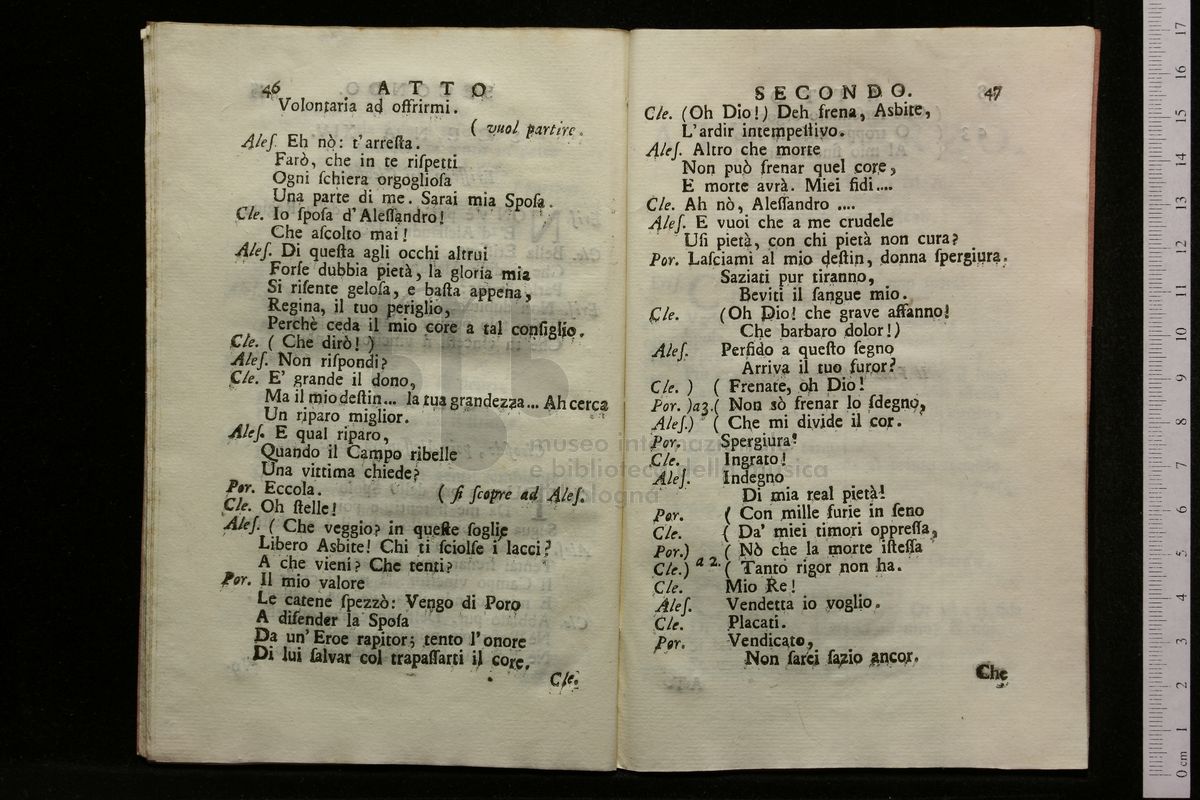 46 A T T O
Volontaria ad offrirmi.
( vuol partire.
Aleſ. Eh nò: t'arreſta.
Farò, che in te riſpetti
Ogni ſchiera orgoglioſa
Una parte di me. Sarai mia Spoſa.
Cle. Io ſpoſa d'Aleſſandro!
Che aſcolto mai!
Aleſ. Di queſta agli occhi altrui
Forſe dubbia pietà, la gloria mia
Si riſente geloſa, e baſta appena,
Regina, il tuo periglio,
Perchè ceda il mio core a tal conſiglio.
Cle. ( Che dirò! )
Aleſ. Non riſpondi?
Cle. E' grande il dono,
Ma il mio deſtin... la tua grandezza... Ah cerca
Un riparo miglior.
Aleſ. E qual riparo,
Quando il Campo ribelle
Una vittima chiede?
Por. Eccola. ( ſi ſcopre ad Aleſ.
Cle. Oh ſtelle!
Aleſ. ( Che veggio? in queſte ſoglie
Libero Asbite! Chi ti ſciolſe i lacci?
A che vieni? Che tenti?
Por. Il mio valore
Le catene ſpezzò: Vengo di Poro
A difender la Spoſa
Da un' Eroe rapitor; tento l'onore
Di lui ſalvar col trapaſſarti il core.
Cle.
S E C O N D O. 47
Cle. (Oh Dio!) Deh frena, Asbite,
L'ardir intempeſtivo.
Aleſ. Altro che morte
Non può frenar quel core,
E morte avrà. Miei fidi....
Cle. Ah nò, Aleſſandro ....
Aleſ. E vuoi che a me crudele
Uſi pietà, con chi pietà non cura?
Por. Laſciami al mio deſtin, donna ſpergiura.
Saziati pur tiranno,
Beviti il ſangue mio.
Cle. (Oh Dio! che grave affanno!
Che barbaro dolor!)
Aleſ. Perfido a queſto ſegno
Arriva il tuo furor?
Cle. ) ( Frenate, oh Dio!
Por. )a3.( Non sò frenar lo ſdegno,
Aleſ.) ( Che mi divide il cor.
Por. Spergiura!
Cle. Ingrato!
Aleſ. Indegno
Di mia real pietà!
Por. ( Con mille furie in ſeno
Cle. ( Da' miei timori oppreſſa,
Por.) ( Nò che la morte iſteſſa
Cle.) a 2. ( Tanto rigor non ha.
Cle. Mio Re!
Aleſ. Vendetta io voglio.
Cle. Placati.
Por. Vendicato,
Non ſarei ſazio ancor.
Che
museo internazionale
e biblioteca della musica
di bologna